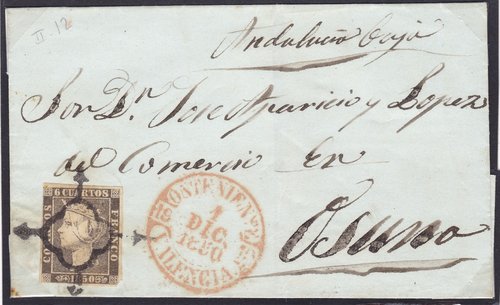 II-12
Andalucia Baja
Sor Dn. Jose Aparicio y Lopez
del Comercio en
Osuna
6 CUARTOS
FRANCO
1850
ONTENIEN
1
DIC
1850
VALENCIA